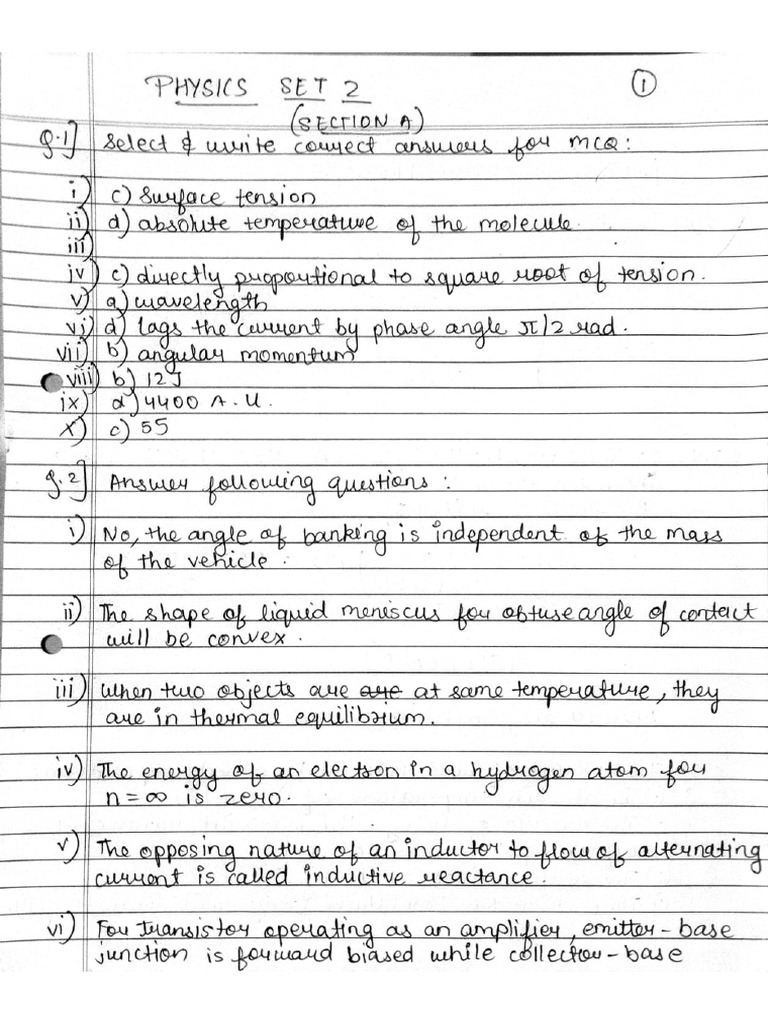 PHYSICS SET 2
1
(SECTION A)
Q.1] Select & write correct answers for MCQ:
i) c) Surface tension
ii) d) absolute temperature of the molecule.
iii)
iv) c) directly proportional to square root of tension.
v) a) wavelength
vi) d) lags the current by phase angle π/2 rad.
vii) b) angular momentum
viii) b) 12J
ix) d) 4400 A.U.
x) c) 55
Q.2] Answer following questions:
i) No, the angle of banking is independent of the mass
of the vehicle.
ii) The shape of liquid meniscus for obtuse angle of contact
will be convex.
iii) When two objects are are at same temperature, they
are in thermal equilibrium.
iv) The energy of an electron in a hydrogen atom for
n = ∞ is zero.
v) The opposing nature of an inductor to flow of alternating
current is called inductive reactance.
vi) For transistor operating as an amplifier, emitter-base
junction is forward biased while collector-base